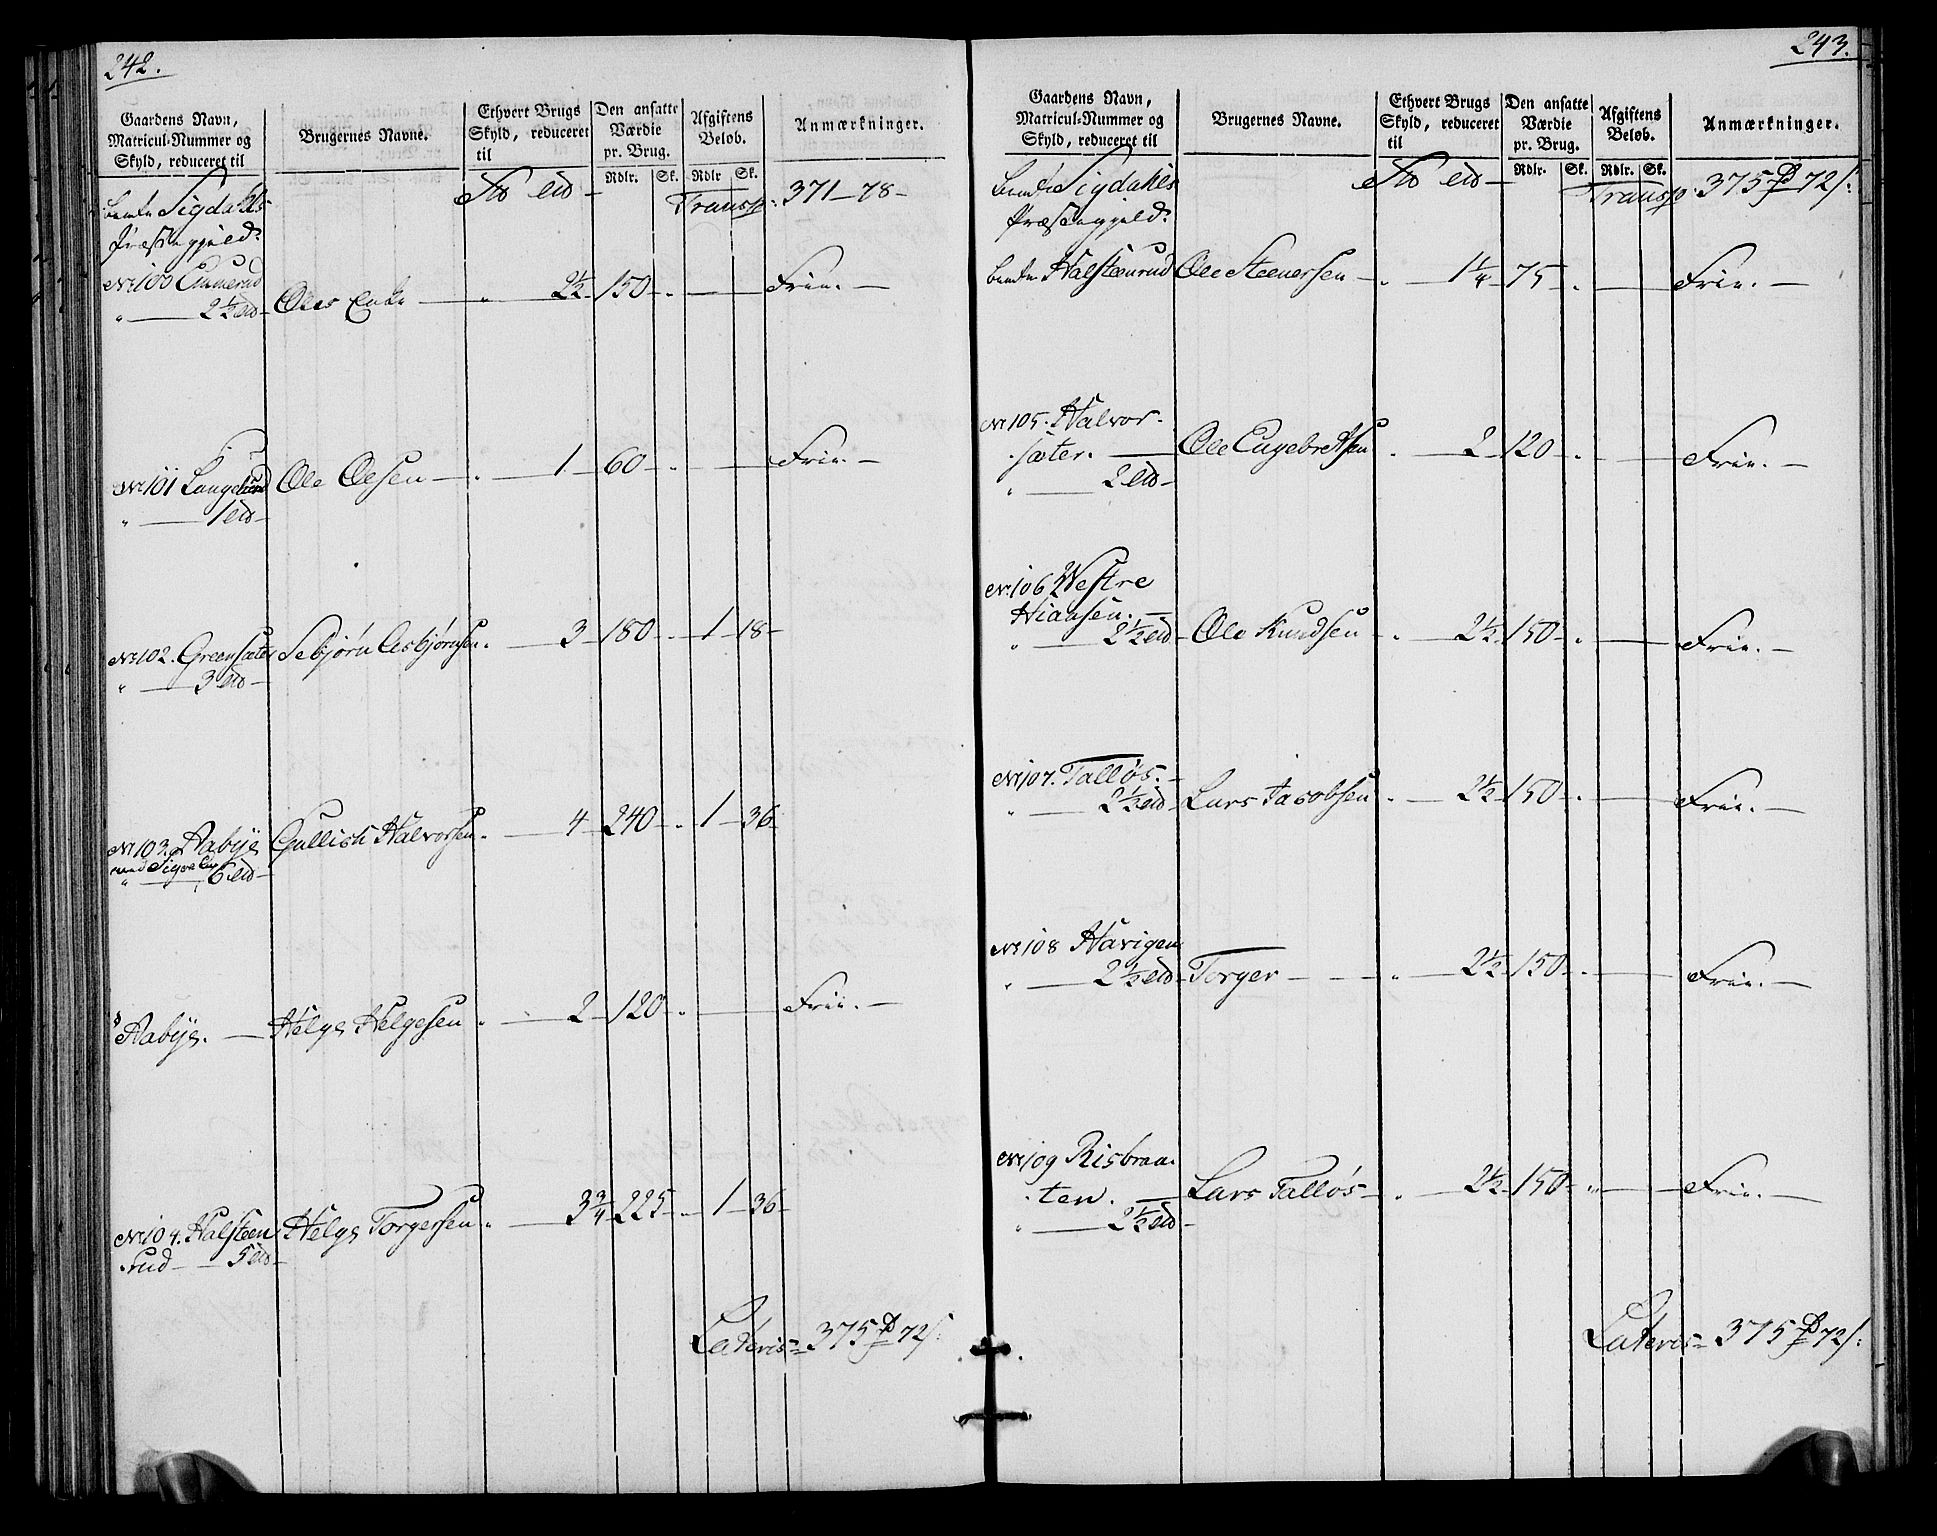 242.
Gaardens Navn, Matricul-Nummer og Skyld, reduceret til | Brugernes Navne. | Ethvert Brugs Skyld, reduceret til | Den ansatte Værdie pr. Brug. Rdlr. Sk. | Afgiftens Beløb. Rdlr Sk. | Anmærkninger.
Sigdahls Præstegjeld: Transp: 371-78-
No 100 Enke 2½ 150 - " Frie. -
" 2½
No 101 Ole Olsen - " 1 - 60 - " Frie. -
" 1
No 102. Greensæter Sebjørn Asbjørnsen. 3 - 180 - " 1 - 18 -
" 3
No 103. Aabye Gullich Halvorsen. 4 - 240 - " 1 - 36 -
med
" 6
Aabye. - Helge Helgesen " 2 - 120 - " Frie. -
No 104. Halsteen Helge Torgersen " 3¾ 225 - " 1 - 36 -
rud - 5
Lateris = 375 72
243.
Gaardens Navn, Matricul-Nummer og Skyld, reduceret til | Brugernes Navne. | Ethvert Brugs Skyld, reduceret til | Den ansatte Værdie pr. Brug. Rdlr. Sk. | Afgiftens Beløb. Rdlr. Sk. | Anmærkninger.
Sigdahls Præstegjeld: Transp: 375 72
Halsteenrud Ole Steenersen - " 1¼ 75 - " Frie. -
No 105. Halvor-
sæter. - Ole Engebretsen " 2 - 120 - " Frie. -
" 2
No 106 Westre
Hiansen. -
" 2½ Ole Knudsen - " 2½ 150 - " Frie. -
No 107. Talløs. -
" 2½ Lars Jacobsen " 2½ 150 - " Frie. -
No 108 Havigen
" 2½ Torger - " 2½ 150 - " Frie. -
No 109 Risbraa-
ten. - Lars Talløs - " 2½ 150 - " Frie. -
" 2½
Lateris = 375 72